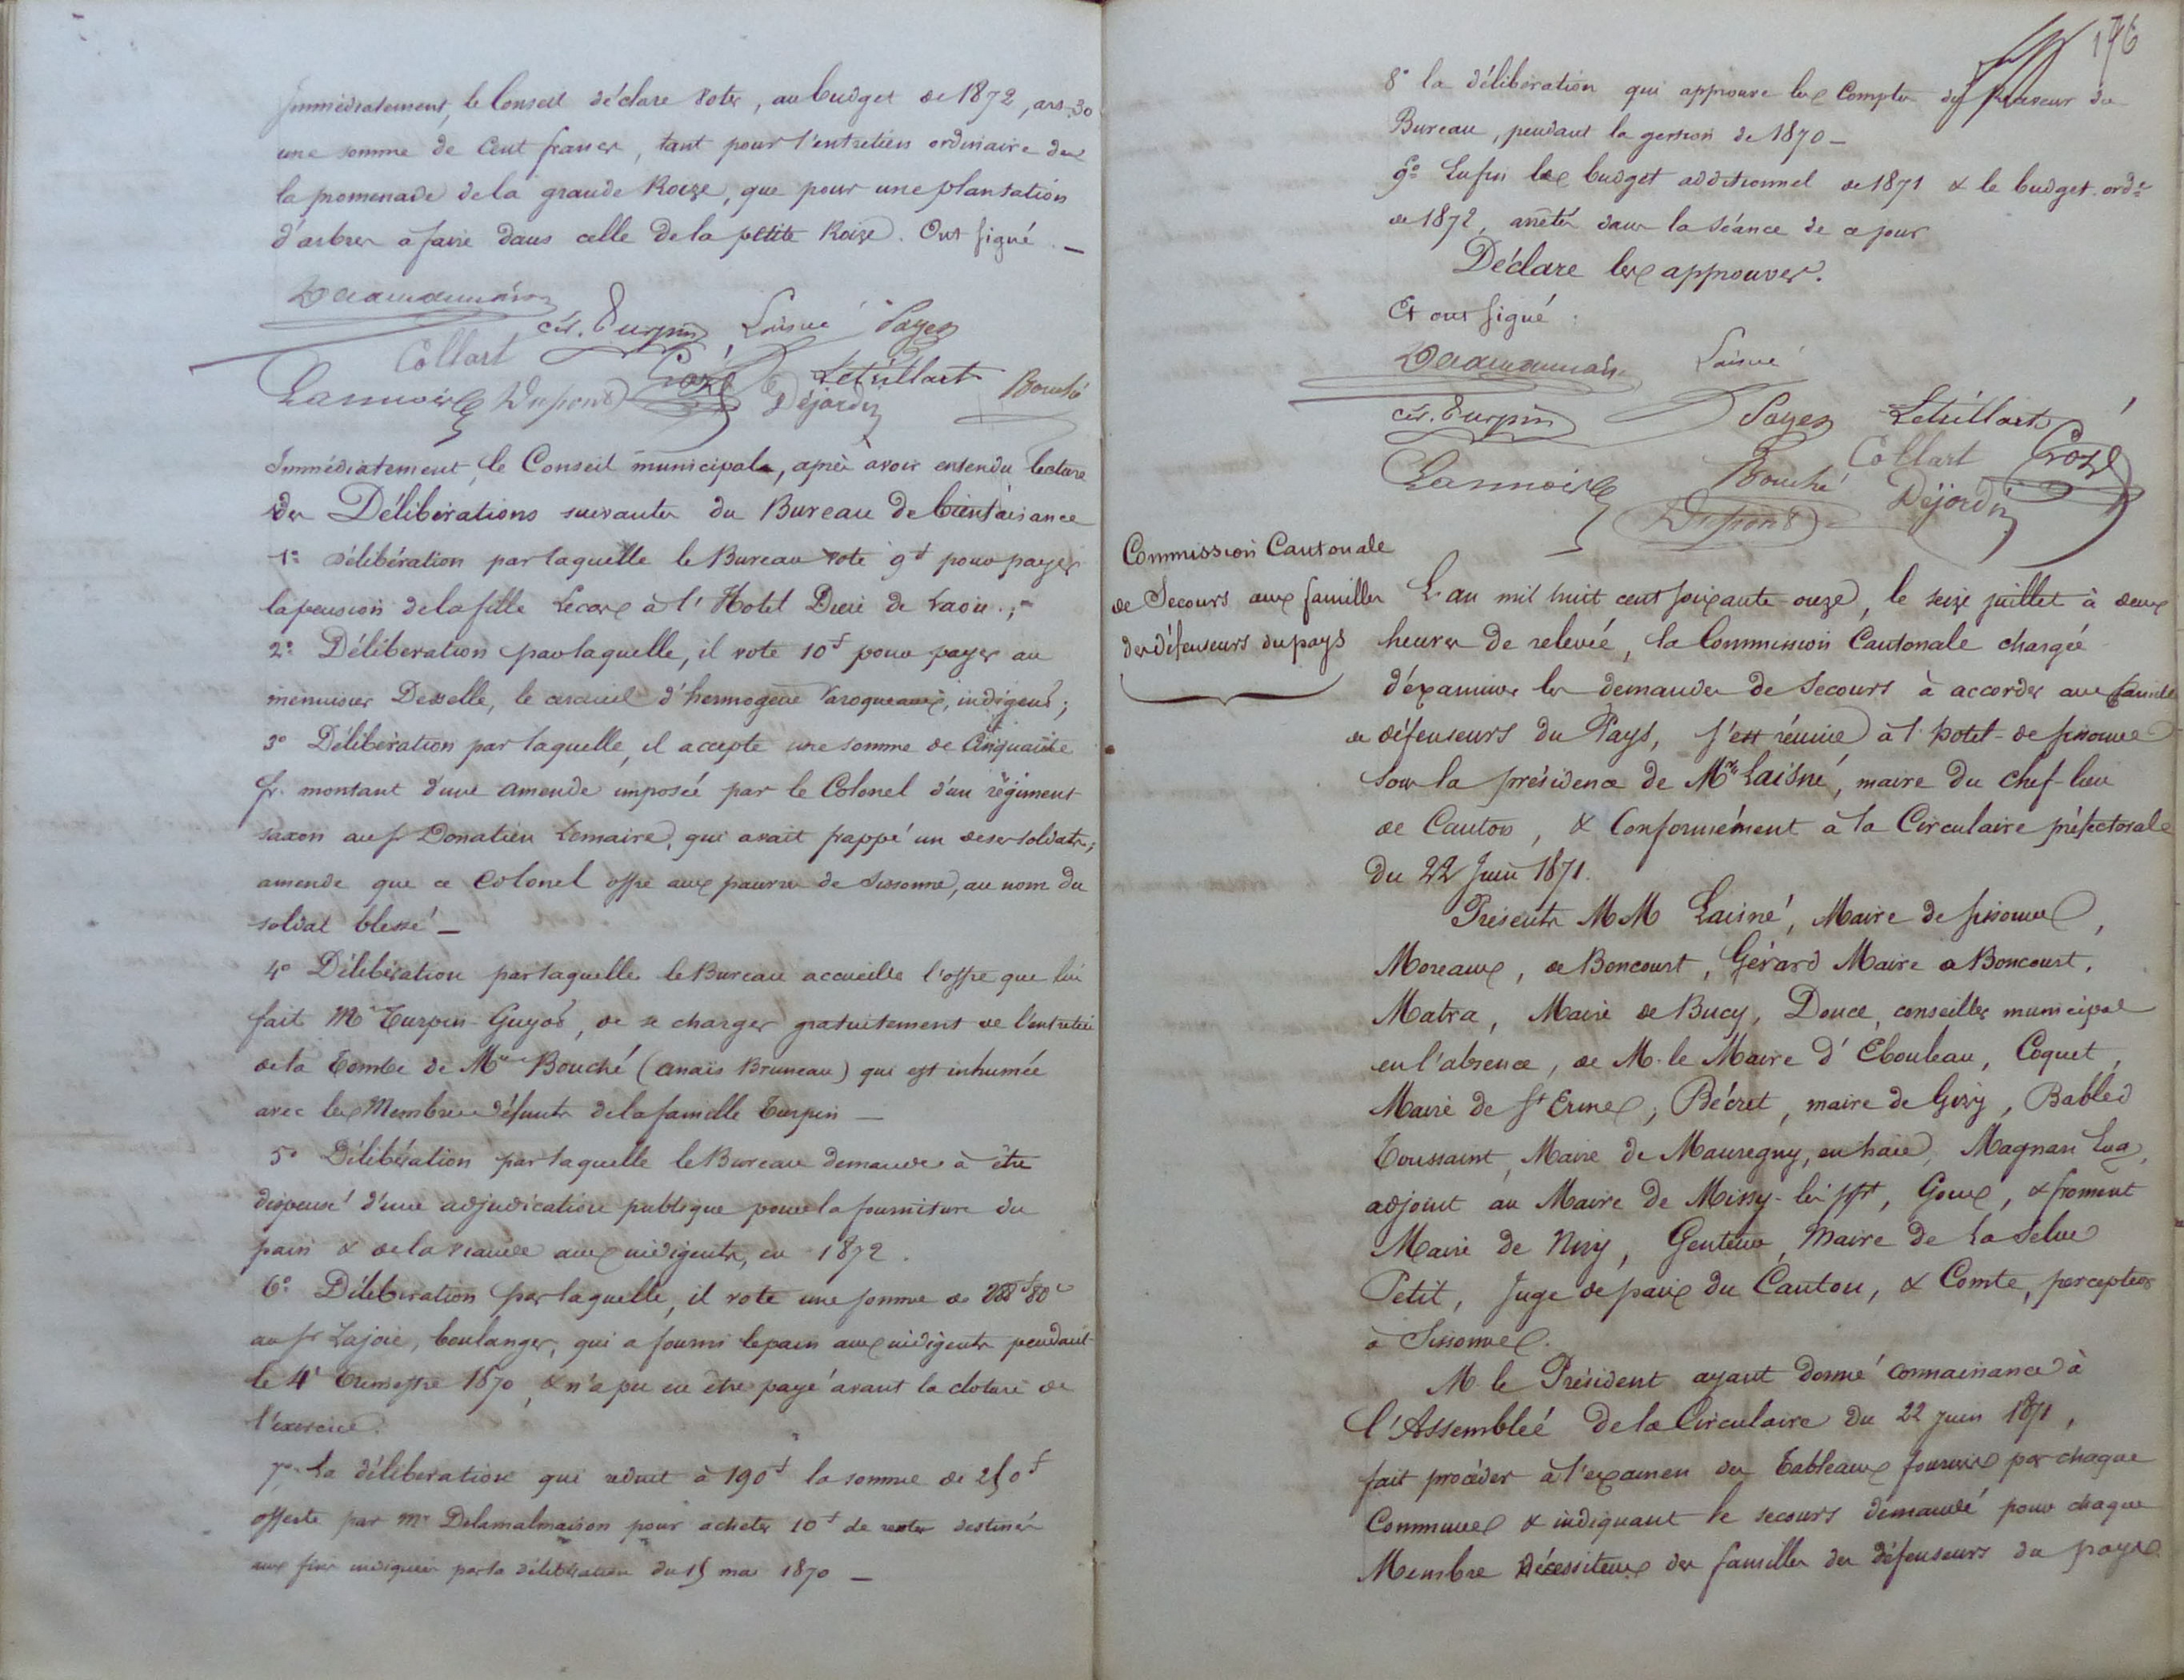 Immédiatement, le Conseil déclare voter, au budget de 1872, art. 30
une somme de Cent francs, tant pour l'entretien ordinaire de
la promenade de la grande Roize, que pour une plantation
d'arbres à faire dans celle de la petite Roize. Ont signé. —
Cés. Turpin Laisné Payen
Collart Crozé Letuillart Bouché
Lannois Dupont Déjardin
Immédiatement, le Conseil municipal, après avoir entendu lecture
des Délibérations suivantes du Bureau de bienfaisance
1° Délibération par laquelle le Bureau vote 9f pour payer
la pension de la fille Lecoz à l'Hotel Dieu de Laon.;
2° Délibération par laquelle, il vote 10f pour payer au
menuisier Desselle, le cercueil d'hermogène indigent;
3° Délibération par laquelle, il accepte une somme de Cinquante
fr. montant d'une amende imposée par le Colonel d'un régiment
saxon au sr Donatien Lemaire, qui avait frappé un de ses soldats;
amende que ce Colonel offre aux pauvres de Sissonne, au nom du
soldat blessé —
4° Délibération par laquelle le Bureau accueille l'offre que lui
fait Mr Turpin-Guyot, de se charger gratuitement de l'entretien
de la tombe de Mme Bouché (Anaïs Bruneau) qui est inhumée
avec les Membres défunts de la famille Turpin —
5° Délibération par laquelle le Bureau demande à être
dispensé d'une adjudication publique pour la fourniture du
pain & de la viande aux indigents, en 1872.
6° Délibération par laquelle, il vote une somme de 288f 80c
au sr Lajoie, boulanger, qui a fourni le pain aux indigents pendant
le 4e trimestre 1870, & n'a pu en être payé avant la cloture de
l'exercice.
7° La délibération qui réduit à 190f la somme de 250f
offerte par Mr Delamalmaison pour acheter 10f de rentes destinés
aux fins indiquées par la délibération du 15 mai 1870 —
176
8° la délibération qui approuve les Comptes du Receveur du
Bureau, pendant la gestion de 1870 —
9° Enfin les budget additionnel de 1871 & le budget ordre
de 1872, arrêtés dans la séance de ce jour
Déclare les approuver.
Et ont signé :
Laisné
Cés. Turpin Payen Letuillart
Collart Crozé
Lannois Bouché
Dupont Déjardin
Commission Cantonale
de Secours aux familles
des défenseurs du pays
L'an mil huit cent soixante-onze, le seize juillet à deux
heures de relevée, la Commission Cantonale chargée
d'examiner les demandes de Secours à accorder aux familles
de défenseurs du Pays, s'est réunie à l'hotel-de Sissonne
sous la présidence de Mr Laisné, maire du Chef-lieu
de Canton, & Conformément à la Circulaire préfectorale
du 22 Juin 1871.
Présents MM Laisné, Maire de Sissonne,
Moreaux, de Boncourt, Gérard Maire de Boncourt,
Matra, Maire de Bucy, Douce, conseiller municipal
en l'absence, de M. le Maire d'Ebouleau, Coquet,
Maire de St Erme, Bécret, maire de Gizy, Babled
Toussaint, Maire de Mauregny, en haie, Magnan Luc,
adjoint au Maire de Missy-les ppt, Goux, & froment
Maire de Nizy, Genteur, Maire de La Selve
Petit, Juge de paix du Canton, & Comte, percepteur
à Sissonne.
M. le Président ayant donné connaissance à
l'Assemblée de la Circulaire du 22 juin 1871,
fait procéder à l'examen des tableaux fournis par chaque
Commune & indiquant le secours demandé pour chaque
Membre nécessiteux des familles des défenseurs du pays